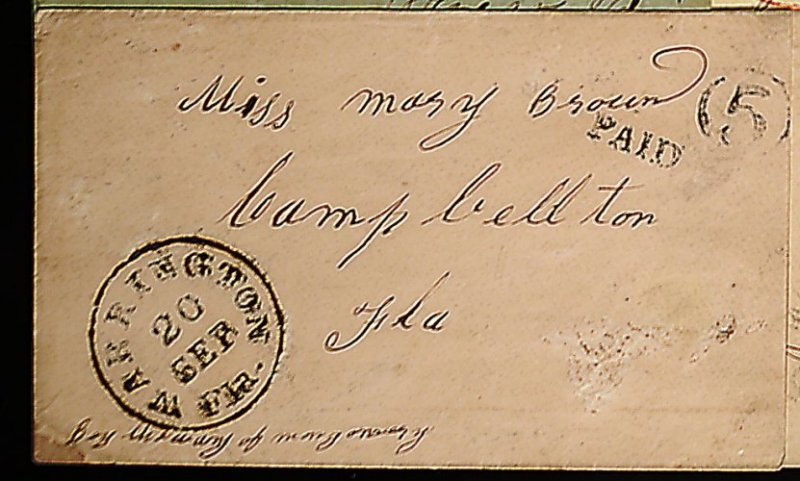 Miss Mary Brown
PAID 5
Campbellton
Fla
WARRINGTON
20
SEP
Flr.